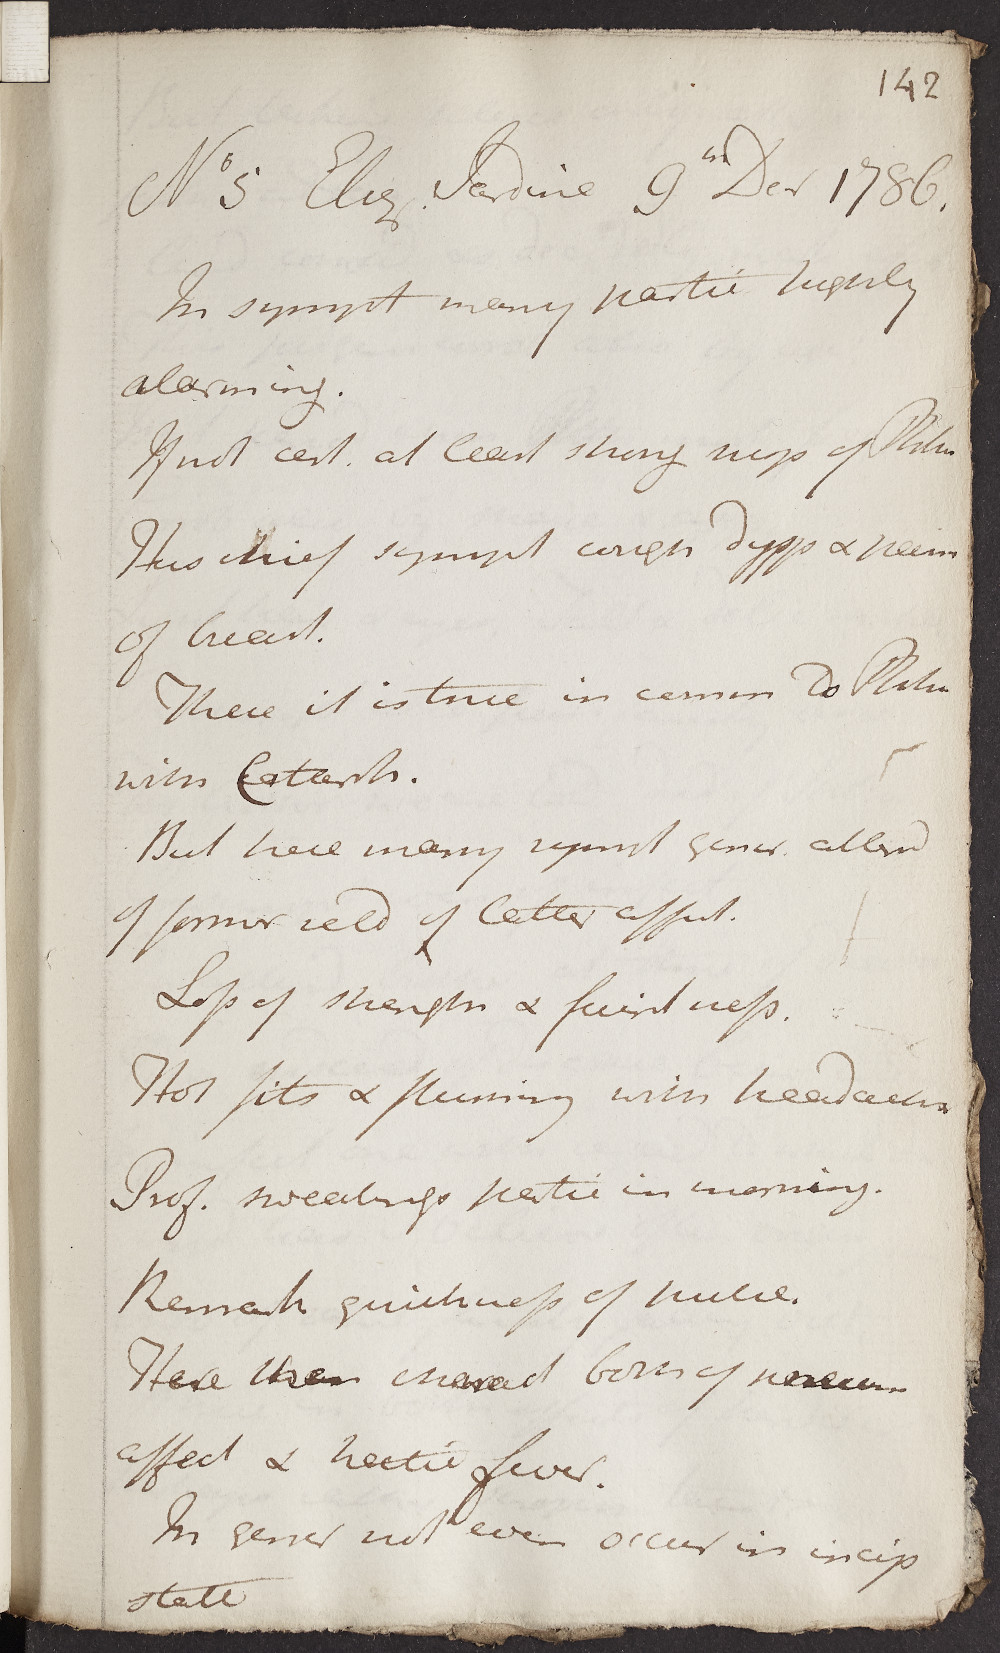 142
No 5 Eliz. Jardine 9th Decr 1786.
In sympt many partic highly
alarming.
If not cert. at least strong susp of Phthis
His chief sympt cough dysp & pain
of breast.
These it is true in common to Phthis
with Catarrh.
But here many sympt gener. attend
of former seld of latter affect.
Loss of strength & faintness.
Hot fits & flushing with headachs
Prof. sweatings partic in morning.
Remark quickness of pulse.
Here then charact both of pneum
affect & hectic fever.
In gener not even occur in incip
state